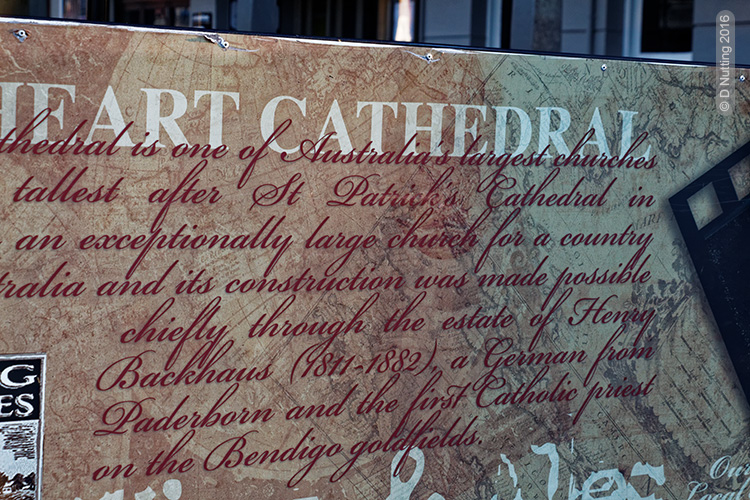 HEART CATHEDRAL
thedral is one of Australia's largest churches
tallest after St Patrick's Cathedral in
an exceptionally large church for a country
tralia and its construction was made possible
chiefly through the estate of Henry
Backhaus (1811-1882), a German from
Paderborn and the first Catholic priest
on the Bendigo goldfields.
G
ES
Our
© D Nutting 2016